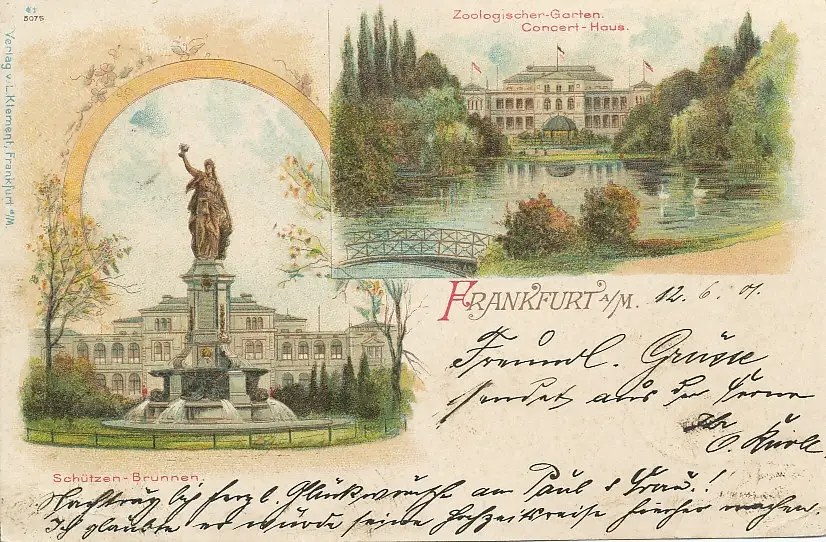 5075
Verlag v. L. Klement, Frankfurt a/M.
Zoologischer-Garten.
Concert-Haus.
FRANKFURT A/M. 12. 6. 01.
Freundl. Grüsse
sendet aus der Ferne
Ihr
O.
Schützen-Brunnen.
Nachträgl. herzl. Glückwünsche an Paul & Frau!
Ich glaubte er würde seine Hochzeitsreise hierher machen.